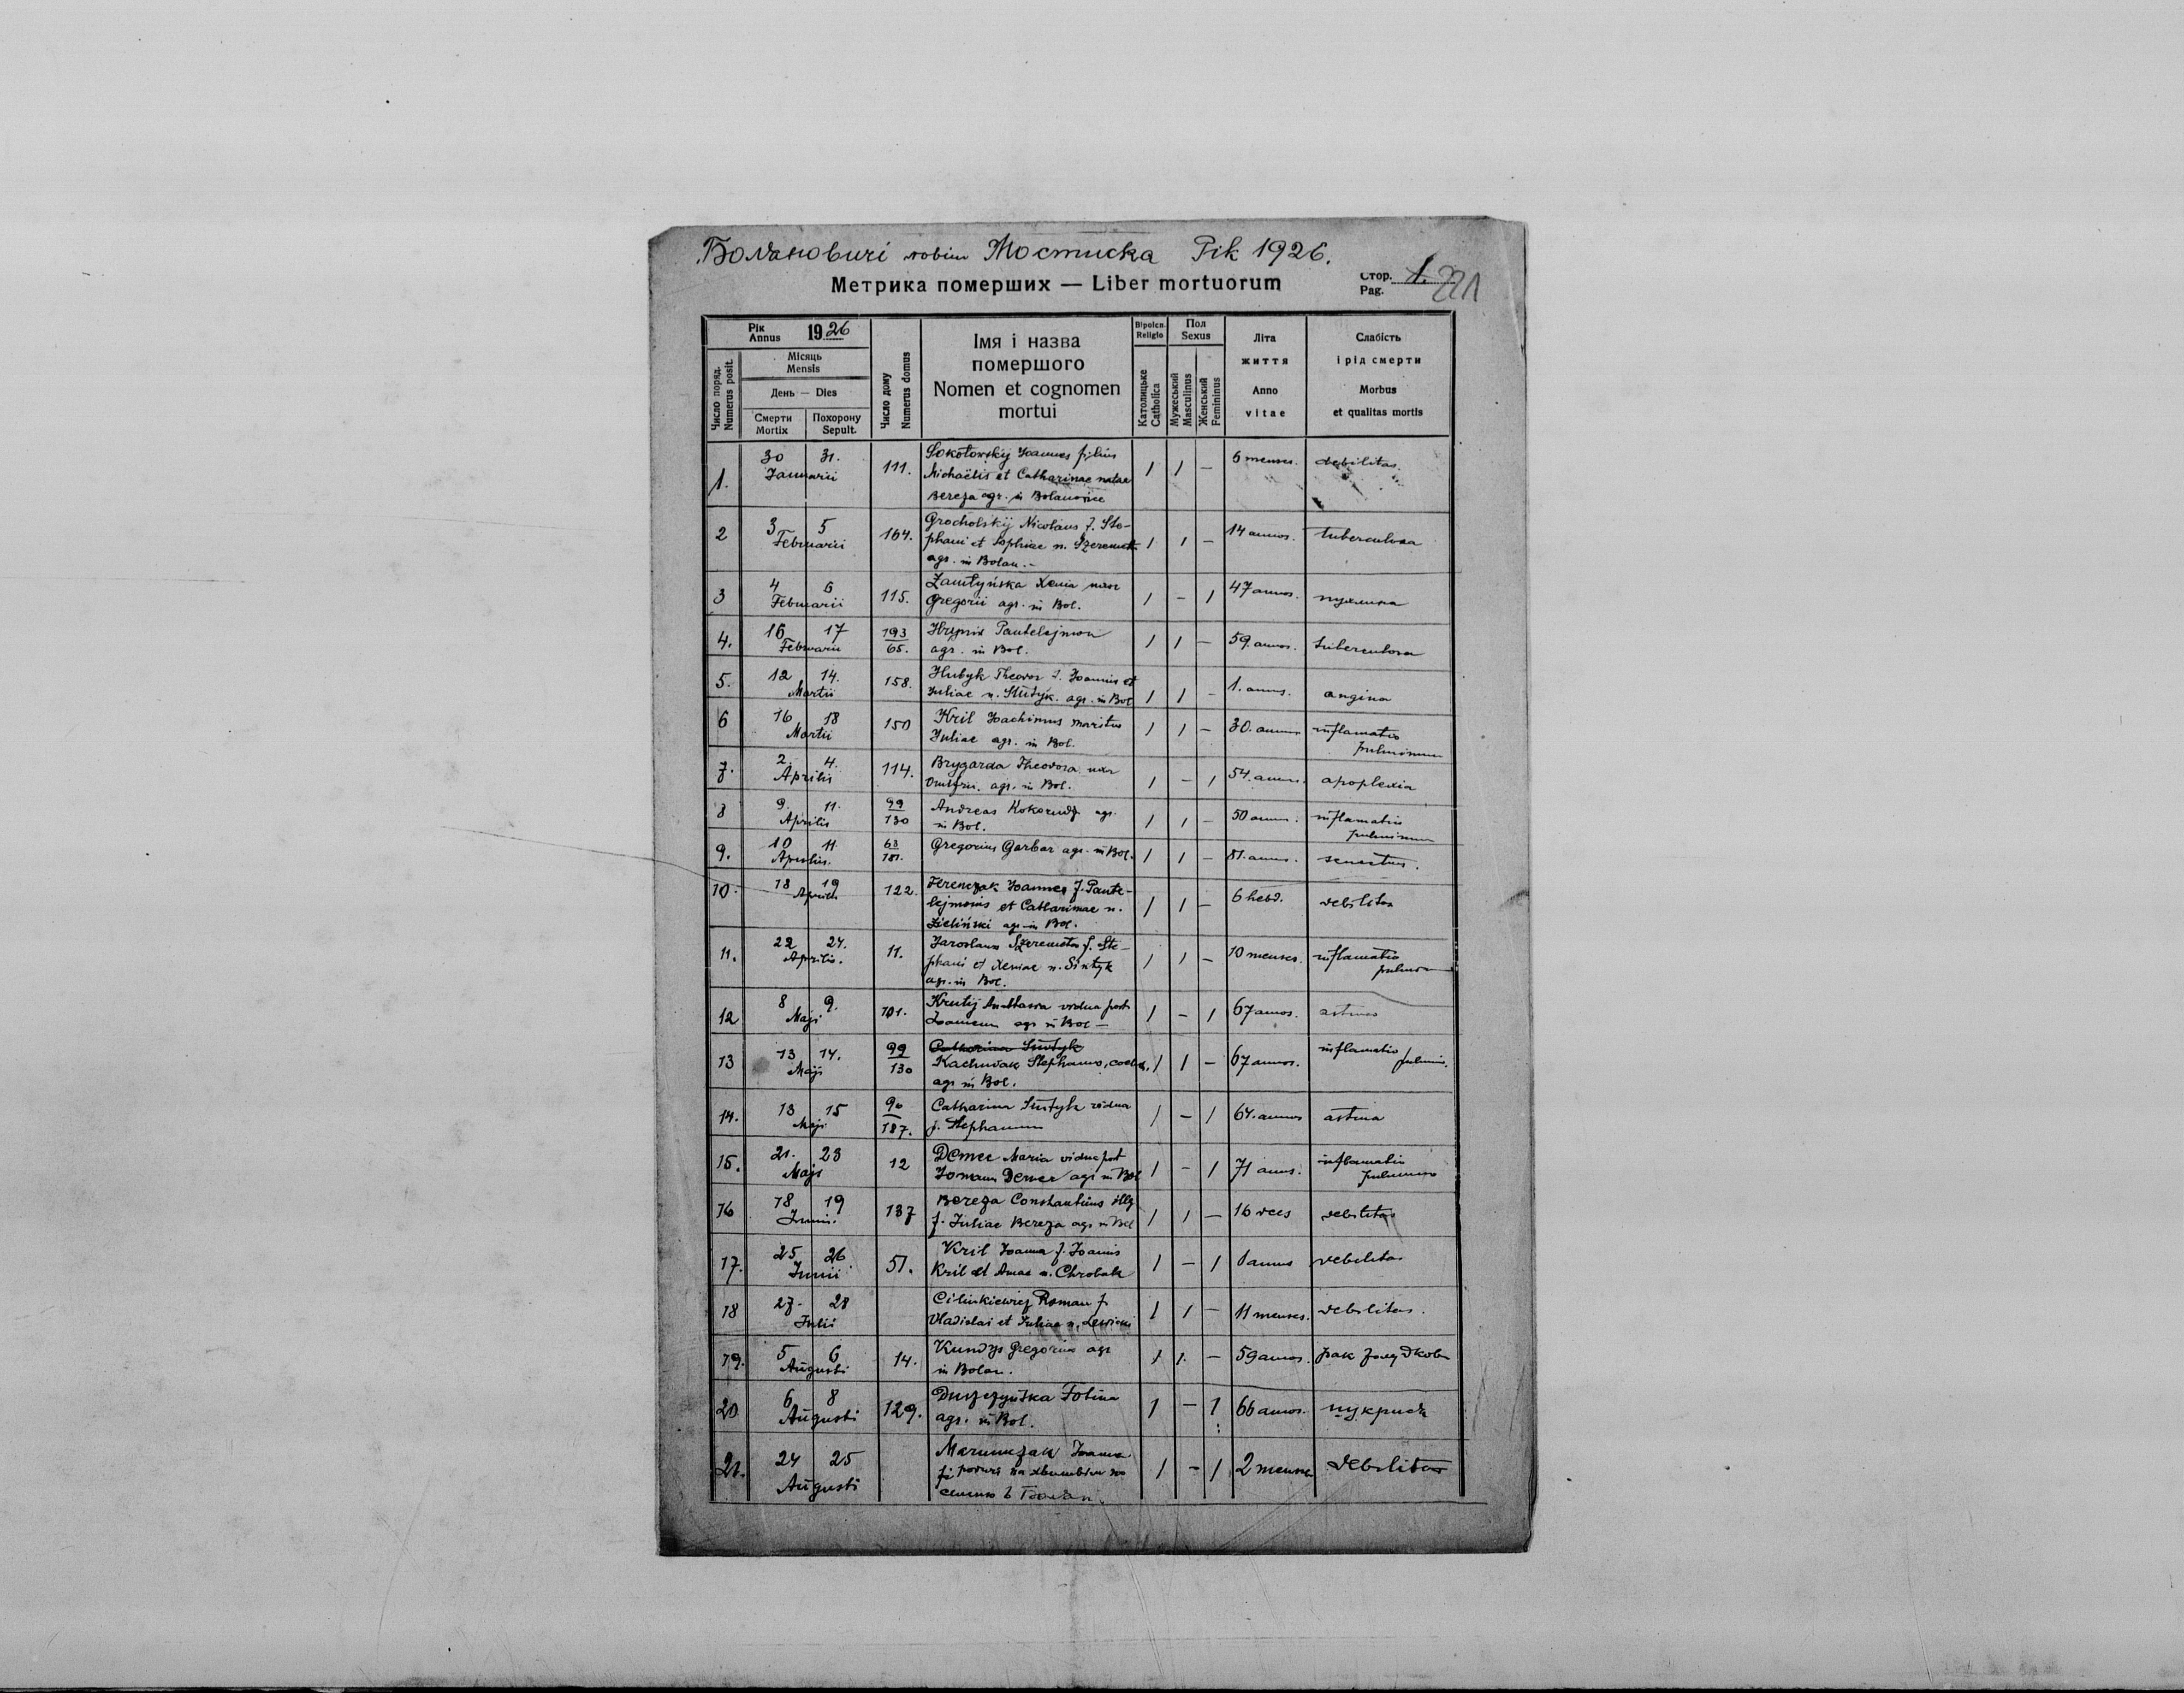 Болановичі повіт Мостиска Рік 1926.
Метрика померших — Liber mortuorum
Стор. Pag. 1. 221
Рік Annus 1926
Місяць Mensis
День — Dies
Число поряд. Numerus posit.
Смерти Mortix
Похорону Sepult.
Число дому Numerus domus
Імя і назва
померш​ого
Nomen et cognomen
mortui
Віроісп. Religio
Католицьке Catholica
Пол Sexus
Мужеський Masculinus
Женський Femininus
Літа
життя
Anno
vitae
Слабість
і рід смерти
Morbus
et qualitas mortis
1. 30 31. Januarii 111. Sokołowskij Joannes filius
Michaëlis et Catharinae natae
Bereza agr. in Bolanowice 1 1 — 6 menses. debilitas.
2 3 5 Februarii 164. Grocholskij Nicolaus f. Ste-
phani et Sophiae n. Szeremeta
agr. in Bolan. - 1 1 — 14 annos. tuberculosa
3 4 6 Februarii 115. Xenia uxor
Gregorii agr. in Bol. 1 — 1 47 annos. пухлина
4. 16 17 Februarii 193/65. Pantelejmon
agr. in Bol. 1 1 — 59. annos. tuberculosa
5. 12 14. Martii 158. Hubyk Theodor f. Joannis et
Juliae n. agr. in Bol 1 1 — 1. annus. angina
6 16 18 Martii 150 Kril Joachimus maritus
Juliae agr. in Bol. 1 1 — 30. annos inflamatio
pulmonum
7. 2. 4. Aprilis 114. Brygarda Theodora uxor
agr. in Bol. 1 — 1 54. annos. apoplexia
8 9. 11. Aprilis 99/130 Andreas Kokorudz agr.
in Bol. 1 1 — 50 annos. inflamatio
pulmonum
9. 10 11. Aprilis. 63/181. Gregorius Garbar agr. in Bol. 1 1 — 81. annos. senectus.
10. 18 19 Aprilis 122. Ferenczak Joannes f. Pante-
lejmonis et Catharinae n.
Zieliński agr. in Bol. 1 1 — 6 hebd. debilitas
11. 22 24. Aprilis. 11. Jaroslaus Szeremeta f. Ste-
phani et Xeniae n.
agr. in Bol. 1 1 — 10 menses. inflamatio
pulmon
12 8 9. Maji 101. Krutij Anastasia vidua post
Joannem agr in Bol — 1 — 1 67 annos. astma
13 13 14. Maji 99/130 Catharina
Kachniak Stephanus, coeleb. 1 1 — 67 annos. inflamatio
agr in Bol. pulmon.
14. 13 15 Maji 90/187. Catharina vidua
p. Stephanum 1 — 1 64. annos astma
15. 21. 23 Maji 12 Demec Maria vidua post
Joannem Demec agr in Bol 1 — 1 71 annos. inflamatio
pulmonum
16 18 19 Junii. 137 Bereza Constantinus illg
f. Juliae Bereza agr in Bol 1 1 — 16 dies debilitas
17. 25 26 Junii 51. Kril Joanna f. Joanis
Kril et Annae n. Chrobak 1 — 1 1 annus debilitas
18 27. 28 Julii Cilinkiewicz Roman f.
Vladislai et Juliae n. Lewicki 1 1 — 11 menses. debilitas.
19. 5 6 Augusti 14. Kundys Gregorius agr
in Bolan. 1 1. — 59 annos. рак
20 6 8 Augusti 129. Duszczyńska Fotina
agr. in Bol. 1 — 1 66 annos. цукриця
21. 24 25 Augusti Marunczak Joanna
1 — 1 2 menses debilitas